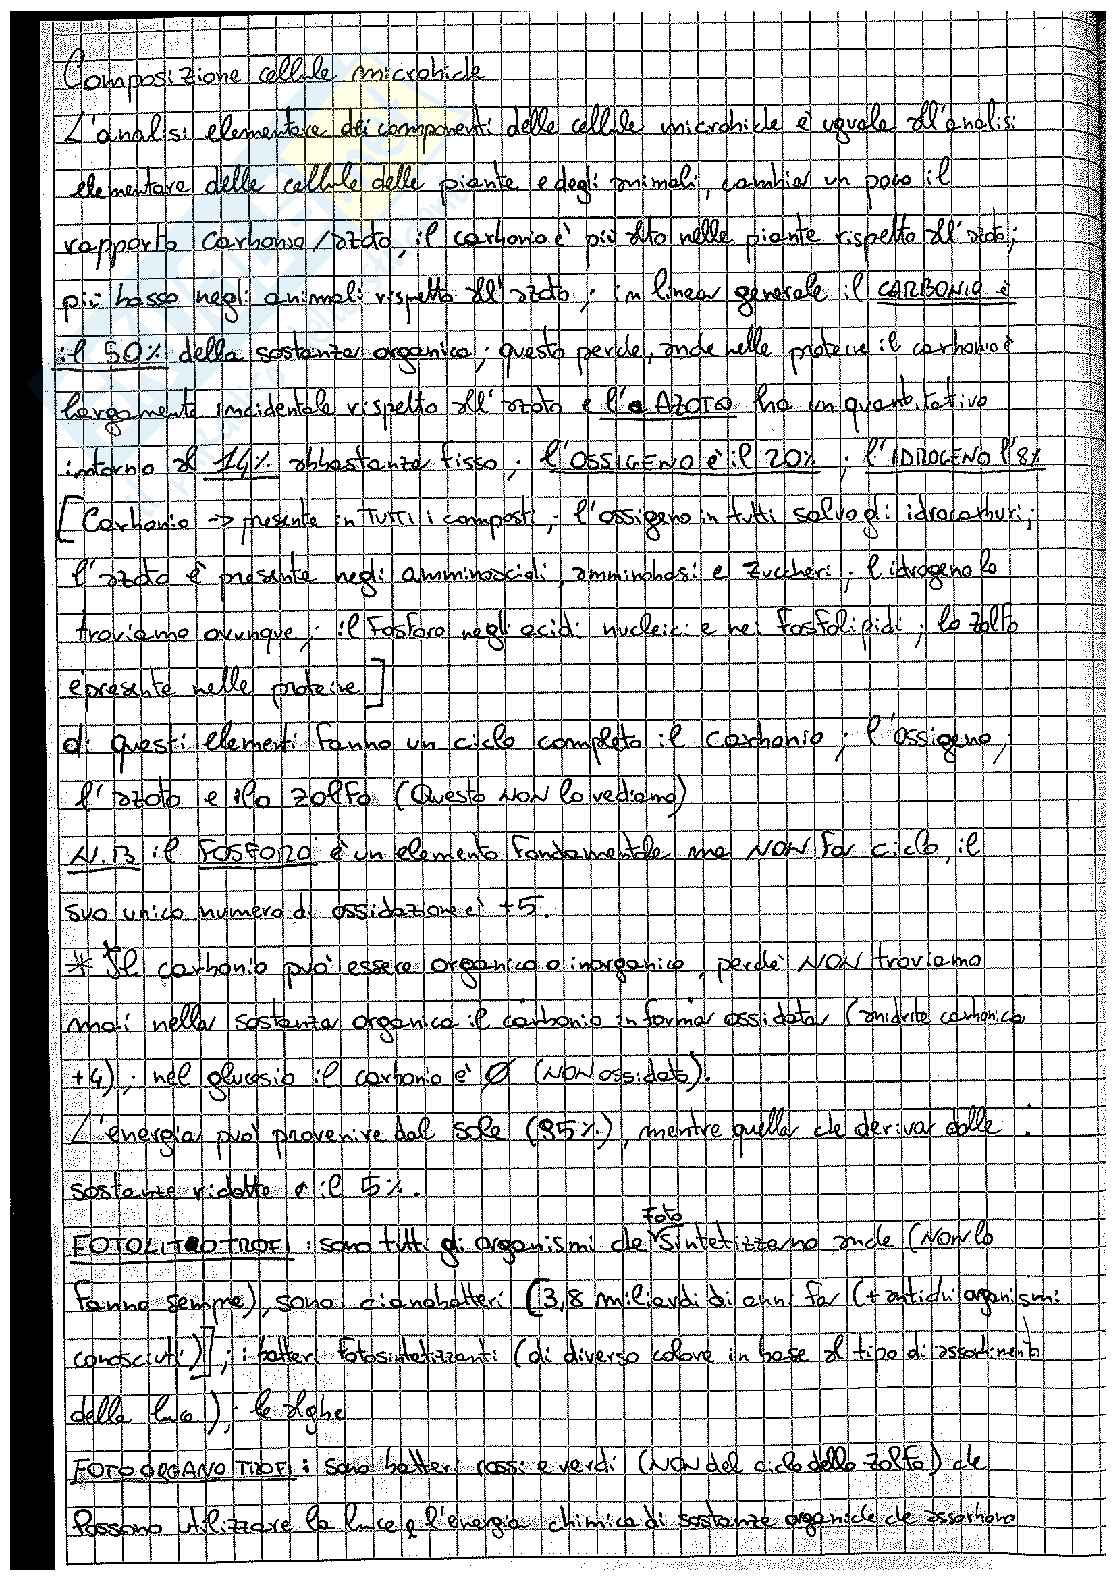 Composizione cellule microbiche
L'analisi elementare dei componenti delle cellule microbiche è uguale all'analisi
elementare delle cellule delle piante e degli animali, cambia un poco il
rapporto carbonio/azoto, il carbonio è più alto nelle piante rispetto all'azoto;
più basso negli animali rispetto all'azoto; in linea generale il CARBONIO è
il 50% della sostanza organica; questo perché, anche nelle proteine il carbonio è
largamente incidentale rispetto all'azoto e l'AZOTO ha un quantitativo
intorno al 14% abbastanza fisso; l'OSSIGENO è il 20%; l'IDROGENO l'8%
[Carbonio -> presente in TUTTI i composti; l'ossigeno in tutti salvo gli idrocarburi;
l'azoto è presente negli amminoacidi, amminobasi e zuccheri; l'idrogeno lo
troviamo ovunque; il Fosforo negli acidi nucleici e nei fosfolipidi; lo zolfo
è presente nelle proteine]
di questi elementi fanno un ciclo completo il carbonio; l'ossigeno,
l'azoto e lo zolfo (Questo NON lo vediamo)
N.B il FOSFORO è un elemento fondamentale ma NON fa ciclo, il
suo unico numero di ossidazione è +5.
* Il carbonio può essere organico o inorganico, perché NON troviamo
mai nella sostanza organica il carbonio in forma ossidata (anidrite carbonica
+4); nel glucosio il carbonio è Ø (NON ossidato).
L'energia può provenire dal sole (95%), mentre quella che deriva dalle
sostanze ridotte è il 5%.
FOTOLITOTROFI: sono tutti gli organismi che Fotosintetizzano anche (NON lo
fanno sempre), sono cianobatteri [3,8 miliardi di anni fa (+ antichi organismi
conosciuti)]; i batteri fotosintetizzanti (di diverso colore in base al tipo di assorbimento
della luce); le alghe
FOTOORGANOTROFI: sono batteri rossi e verdi (NON del ciclo dello zolfo) che
Possono utilizzare la luce e l'energia chimica di sostanze organiche che assorbono